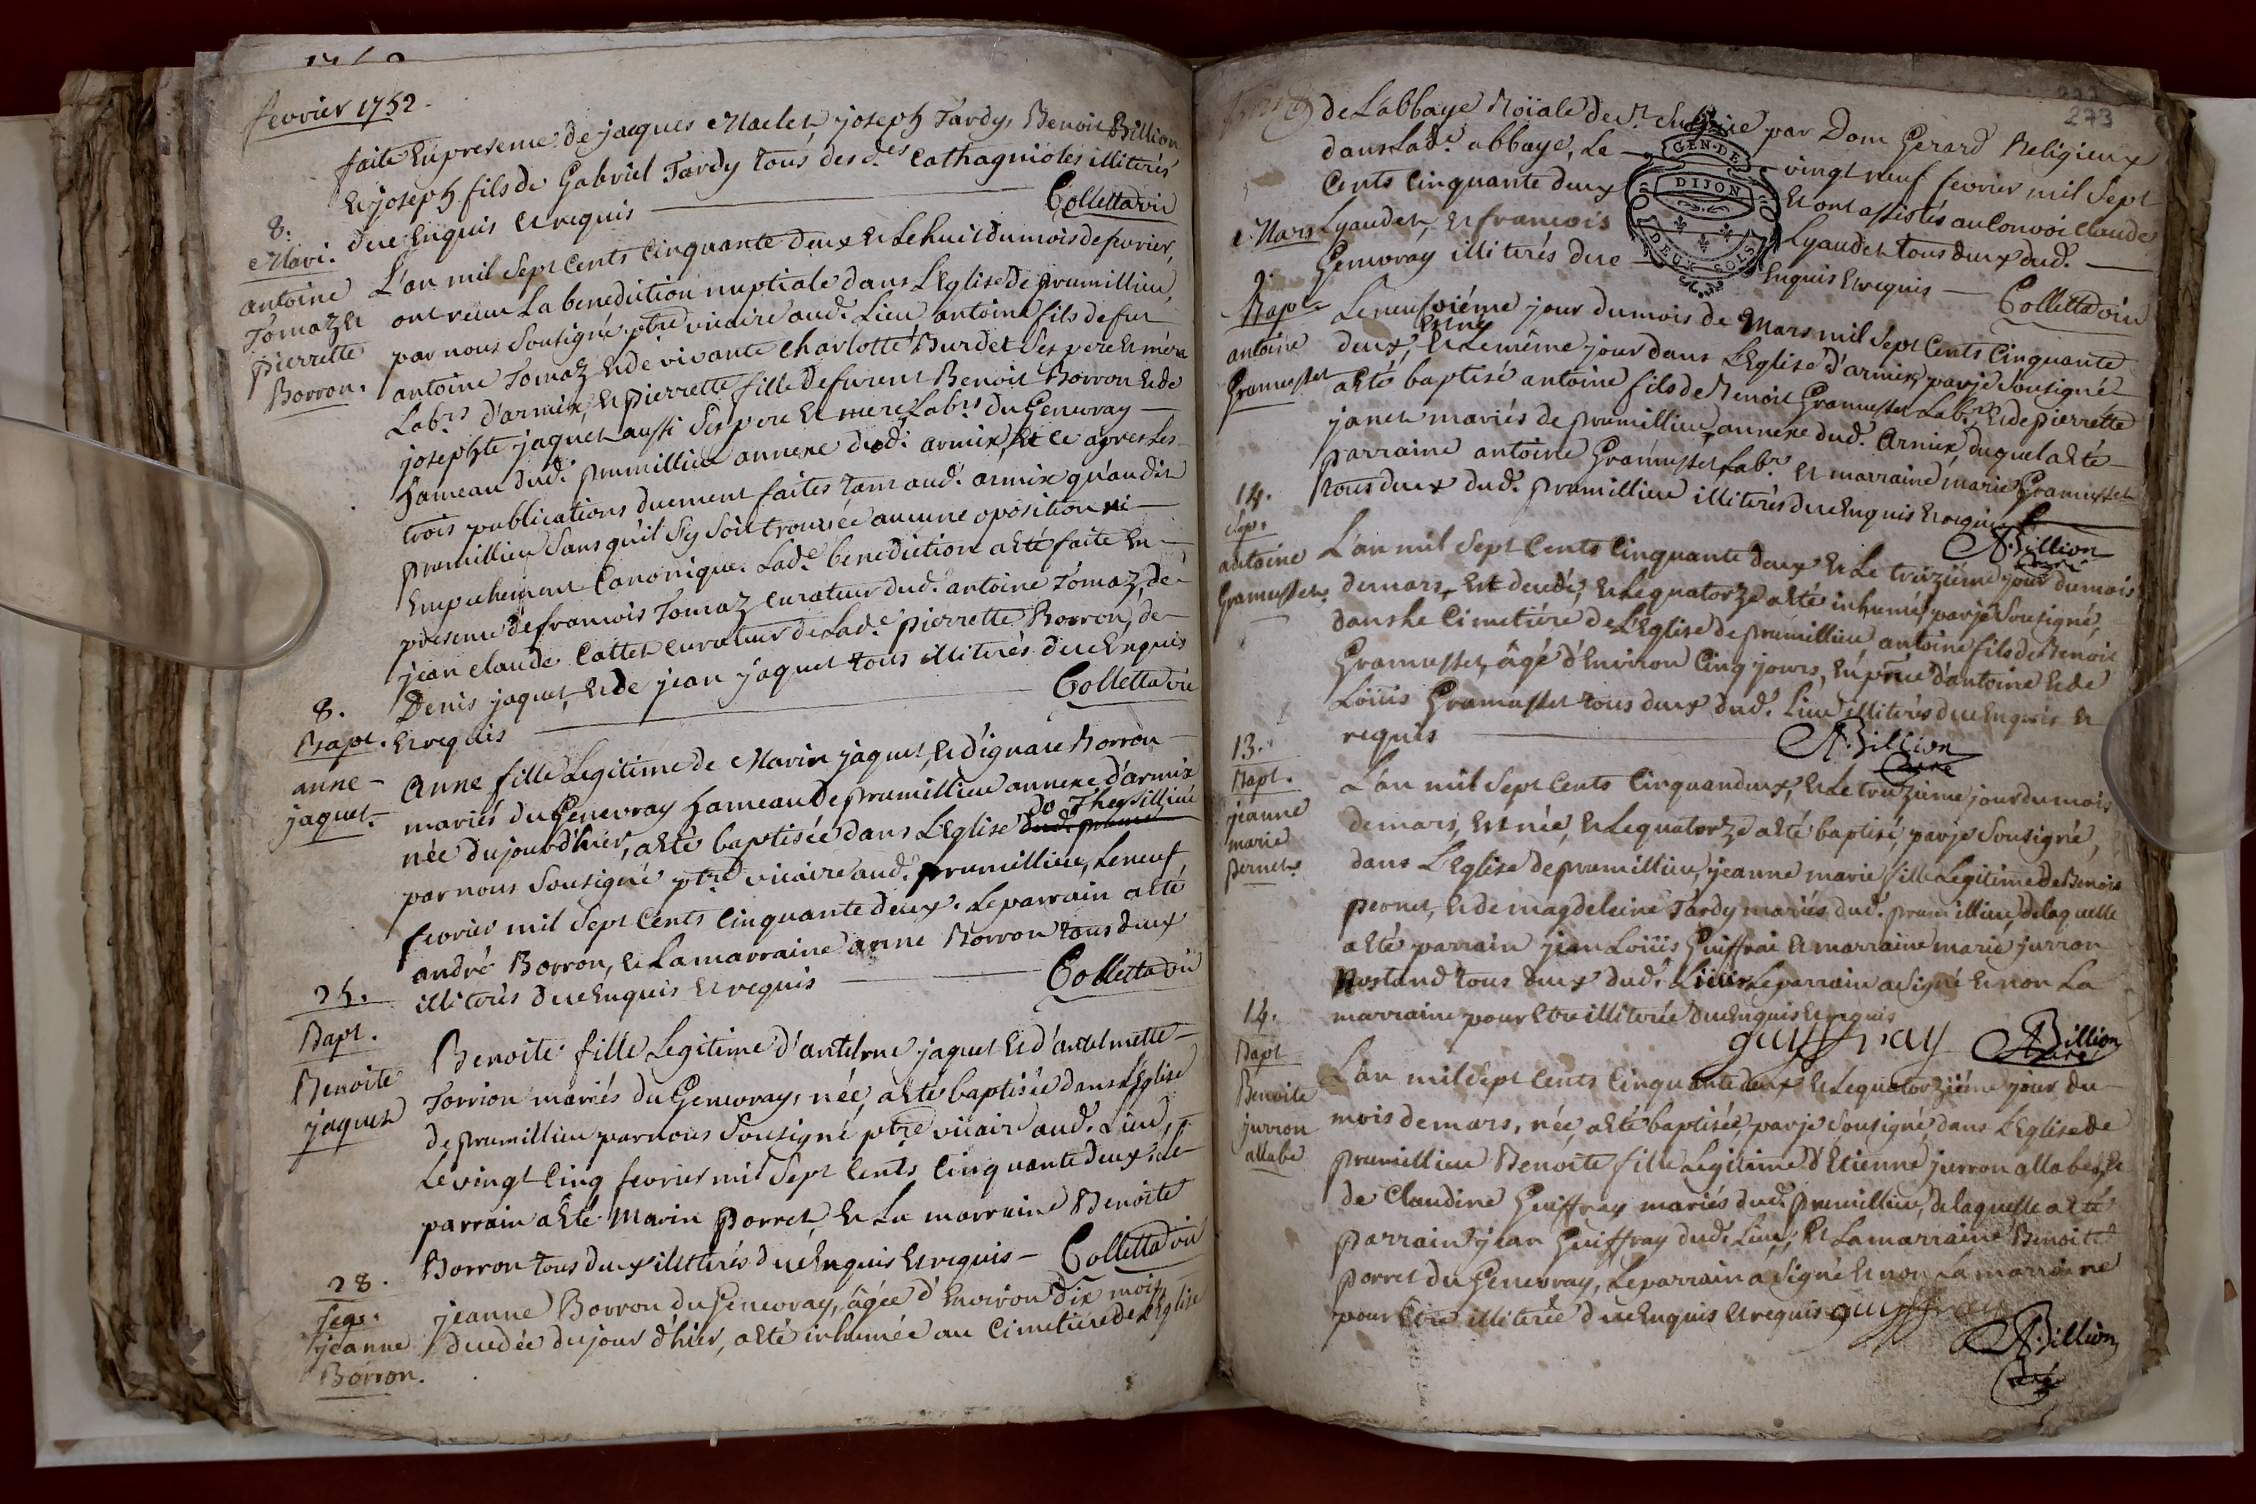 fevrier 1752.
faite en presence de jacques Maclet, joseph Tardy, Benoit Billion
et joseph fils de Gabriel Tardy tous des d.es Cathagnioles illiterés
due enquis et requis Collettavic
8.
Mari.
antoine
Tomaz et
pierrette
Borron.
L'an mil sept cents cinquante deux et le huit du mois de fevrier,
ont recu la benediction nuptiale dans L'Eglise de prumillieu,
par nous sousigné ptre vicaire aud. Lieu antoine fils de feu
antoine Tomaz et de vivante Charlotte Burdet ses pere et mere
Lab.rs d'armix, et pierrette fille de furent Benoit Borron et de
josephte jaquet aussi ses pere et mere Lab.rs du Genevray
hameau dud. prumillieu annexe dud. armix, et ce apres les
trois publications duement faites tant aud. armix qu'audit
prumillieu sans qu'il s'y soit trouvée aucune oposition ni
empechement Canonique. Lad.e benediction a été faite en
presence de francois Tomaz curateur dud. antoine Tomaz, de
jean claude Cattet curateur de Lad.e pierrette Borron, de
Denis jaquet, et de jean jaquet tous illiterés due enquis
et requis Collettavic
8.
Bapt.
anne
jaquet.
Anne fille Legitime de Marin jaquet, et d'ignace Borron
mariés du Genevray hameau de prumillieu annexe d'armix
née du jour d'hier, a été baptisée dans L'Eglise de Theysillieu
par nous sousigné ptre vicaire aud. prumillieu, le neuf
fevrier mil sept cents cinquante deux. Le parrain a été
andré Borron, et La marraine anne Borron tous deux
illiterés due enquis et requis Collettavic
25.
Bapt.
Benoite
jaquet
Benoite fille Legitime d'antelme jaquet et d'antelmette
Torrion mariés du Genevray, née, a été baptisée dans L'Eglise
de prumillieu par nous sousigné ptre vicaire aud. Lieu,
Le vingt cinq fevrier mil sept cents cinquante deux. Le
parrain a été Marin porret, et La marraine Benoite
Borron tous deux illiterés due enquis et requis Collettavic
28.
Sep.
jeanne
Borron.
jeanne Borron du Genevray, âgée d'environ dix mois,
decedée du jour d'hier, a été inhumée au Cimetiere de L'Eglise
273
de L'abbaye Roïale de S.t Sulpice par Dom Gerard Religieux
dans Lad.e abbaye, Le vingt neuf fevrier mil sept
cents cinquante deux et ont assistés au Convoi claude
Lyaudet, et francois Lyaudet tous deux dud.
Genevray illiterés due enquis et requis Collettavic
GEN. DE
DIJON
DEUX SOLS
Mars
9.
Bapt.
antoine
Gramusset
Le neufvième jour du mois de Mars mil sept cents cinquante
deux, est né et le même jour dans L'Eglise d'armix, par je sousigné
a été baptisé antoine fils de Benoit Gramusset Lab.r, et de pierrette
janet mariés de prumillieu, annexe dud. Armix, duquel a été
parraine antoine Gramusset Lab.r et marraine marie Gramusset
tous deux dud. prumillieu illiterés due enquis et requis
Billion
Curé
14.
Sep.
antoine
Gramusset.
L'an mil sept cents cinquante deux et Le treizième jour du mois
de mars, est decedé, et Le quatorze a été inhumé, par je sousigné,
dans le Cimetière de L'Eglise de prumillieu, antoine fils de Benoit
Gramusset, âgé d'environ cinq jours, en pnce d'antoine et de
Loüis Gramusset tous deux dud. Lieu illiterés due enquis et
requis Billion
Curé
13.
Bapt.
jeanne
marie
pernet.
L'an mil sept cents cinquandeux, et Le treizieme jour du mois
de mars, est née, et Le quatorze a été baptisé, par je sousigné,
dans L'Eglise de prumillieu, jeanne marie fille Legitime de Benoit
pernet, et de magdeleine Tardy mariés dud. prumillieu, de laquelle
a été parrain jean Loüis Guiffrai et marraine marie jurron
Rostand tous deux dud. Lieu, Le parrain a signé et non La
marraine pour être illiterée due enquis et requis
guyffray Billion
Curé
14.
Bapt
Benoite
jurron
allabe
L'an mil sept cents cinquante deux et Le quatorzième jour du
mois de mars, née, a été baptisée, par je sousigné, dans L'Eglise de
prumillieu Benoite fille Legitime d'Etienne jurron allabe, et
de Claudine Guiffray mariés dud. prumillieu, de laquelle a été
parrain jean Guiffray dud. Lieu, et La marraine Benoite
porret du Genevray, Le parrain a signé et non La marraine
pour être illiterée due enquis et requis guyffray
Billion
Curé